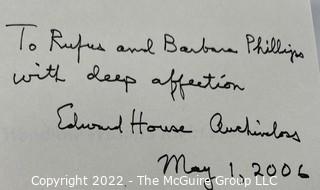 To Rufus and Barbara Phillips
with deep affection
Edward House Auchincloss
May 1, 2006
Copyright 2022 - The McGuire Group LLC